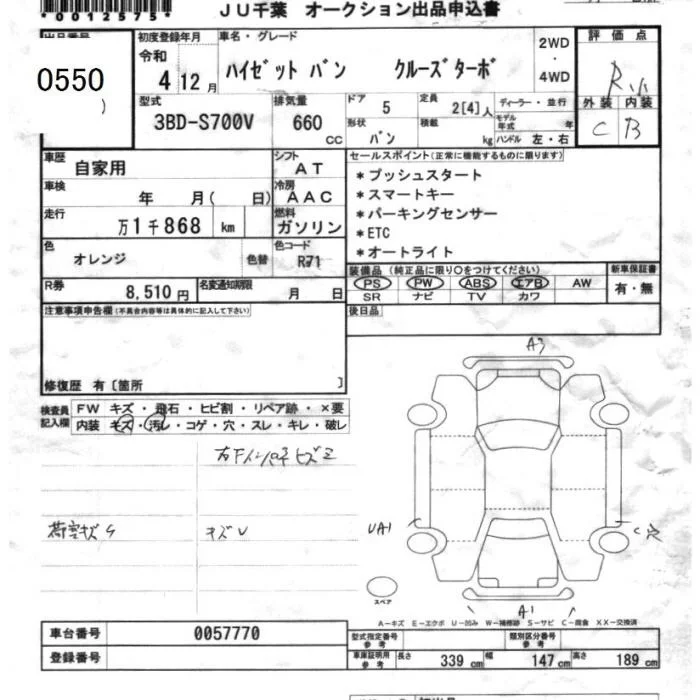 *0012575*
JU千葉 オークション出品申込書
出品番号
0550
初度登録年月
令和
4 12月
車名・グレード
ハイゼット バン クルーズターボ
2WD
・
4WD
評価点
外装 内装
C B
型式
3BD-S700V
排気量
660
cc
ドア
5
形状
バン
定員
2[4]人
積載
kg
ディーラー・並行
モデル年式 年
ハンドル 左・右
車歴
自家用
シフト
AT
車検
年 月( 日)
冷房
AAC
走行
万1千868 km
燃料
ガソリン
色
オレンジ
色替
色コード
R71
R券
8,510円
名変通知期限
月 日
セールスポイント(正常に機能するものに限ります)
*プッシュスタート
*スマートキー
*パーキングセンサー
*ETC
*オートライト
装備品(純正品に限り○をつけてください)
PS PW ABS エアB AW
SR ナビ TV カワ
新車保証書
有・無
後日品
注意事項申告欄(不具合内容等は具体的に記入して下さい)
修復歴 有〔箇所 〕
検査員
記入欄
FW キズ・飛石・ヒビ割・リペア跡・×要
内装 キズ・汚レ・コゲ・穴・スレ・キレ・破レ
荷室キズ
キズU
A3
UA1
C穴
A1
スペア
A－キズ E－エクボ U－凹み W－補修跡 S－サビ C－腐食 XX－交換済
車台番号
0057770
登録番号
型式指定番号
参考
類別区分番号
参考
車庫証明用
参考
長さ 339cm 幅 147cm 高さ 189cm